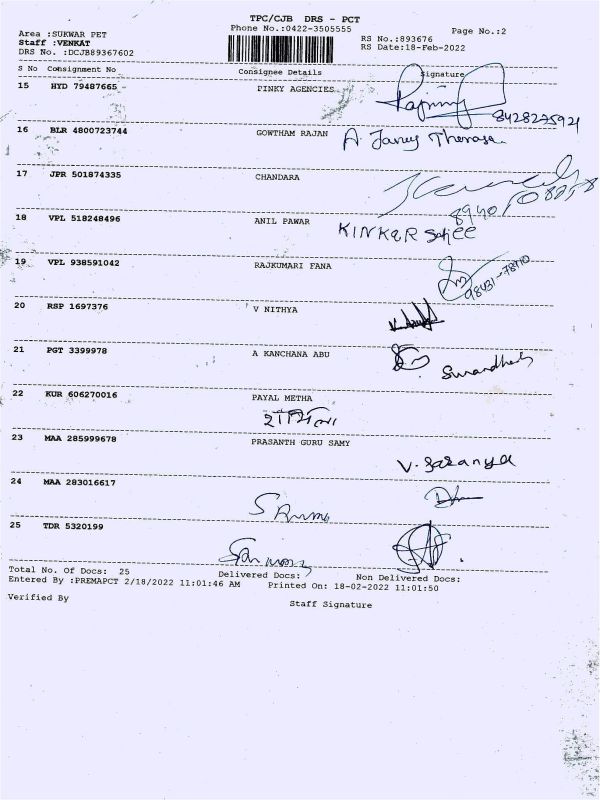 TPC/CJB DRS - PCT
Phone No.:0422-3505555
Page No.:2
Area :SUKWAR PET
RS No.:893676
Staff :VENKAT
RS Date:18-Feb-2022
DRS No. :DCJB89367602
S No Consignment No Consignee Details Signature
15 HYD 79487665 PINKY AGENCIES
8428275921
16 BLR 4800723744 GOWTHAM RAJAN
A
17 JPR 501874335 CHANDARA
18 VPL 518248496 ANIL PAWAR
KINKER
19 VPL 938591042 RAJKUMARI FANA
20 RSP 1697376 V NITHYA
21 PGT 3399978 A KANCHANA ABU
22 KUR 606270016 PAYAL METHA
23 MAA 285999678 PRASANTH GURU SAMY
V. Saranya
24 MAA 283016617
25 TDR 5320199
Total No. Of Docs: 25 Delivered Docs: Non Delivered Docs:
Entered By :PREMAPCT 2/18/2022 11:01:46 AM Printed On: 18-02-2022 11:01:50
Verified By
Staff Signature